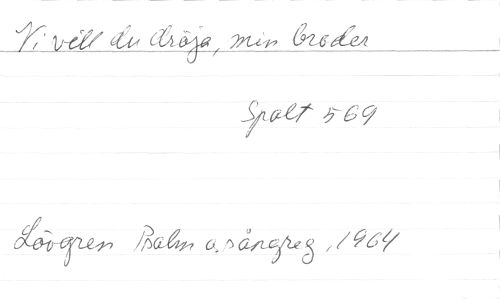 Vi vill du dröja, min broder
Spalt 569
Lövgren Psalm o. sångreg, 1964